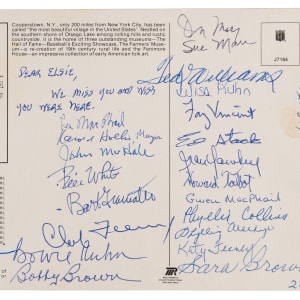 Cooperstown, N.Y., only 200 miles from New York City, has been
called "the most beautiful village in the United States". Nestled
on the southern shore of Otsego Lake among rolling hills and rustic
countryside. It is the home of three outstanding museums—The
Hall of Fame—Baseball's Exciting Showcase, The Farmers' Museum
—a recreation of 19th century rural life and the Fenimore
House—an impressive collection of early American folk art.
J7184
Dear Elsie,
We miss you and wish
you were here.
Lee MacPhail
John McHale
Bill White
Bart Giamatti
Chub Feeney
Bowie Kuhn
Bobby Brown
Sue
Ted Williams
Luisa Kuhn
Fay Vincent
Ed Stack
Jean Yawkey
Howard Talbot
Gwen MacPhail
Phyllis Collins
Kitty Feeney
Sara Brown